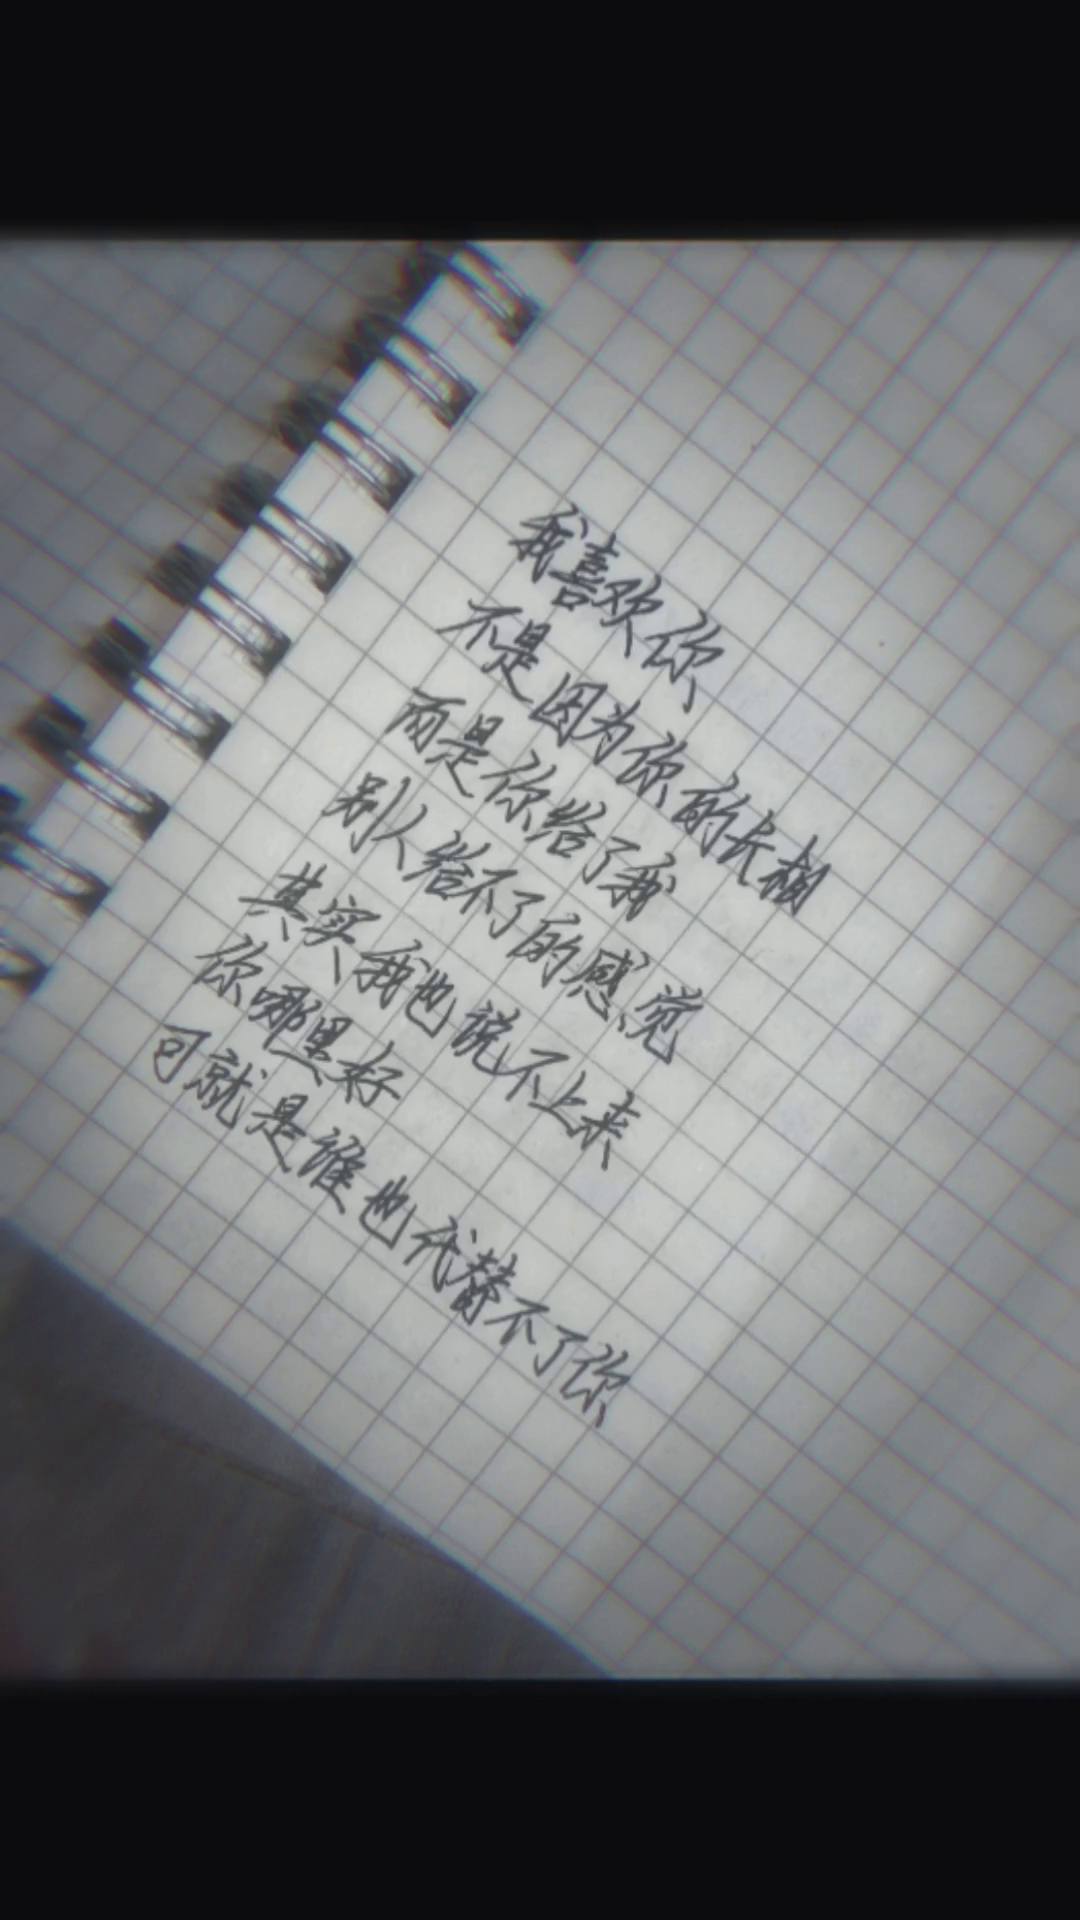 我喜欢你
不是因为你的长相
而是你给了我
别人给不了的感觉
其实我也说不上来
你哪里好
可就是谁也代替不了你